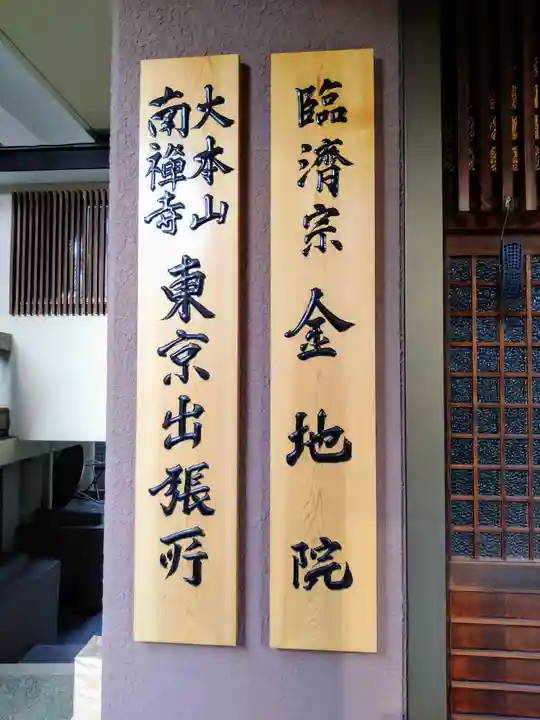 臨濟宗 金地院
大本山
南禪寺
東京出張所